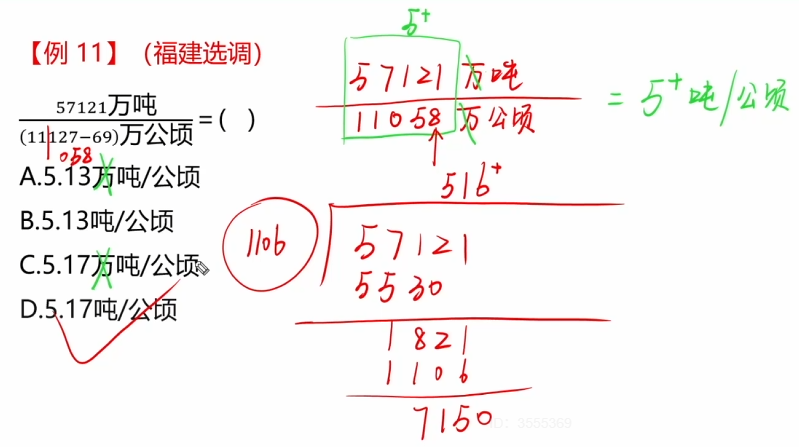 【例 11】（福建选调）
57121万吨
(11127−69)万公顷
=( )
11058
A.5.13万吨/公顷
B.5.13吨/公顷
C.5.17万吨/公顷
D.5.17吨/公顷
5⁺
57121万吨
11058万公顷
= 5⁺吨/公顷
516⁺
1106
57121
5530
1821
1106
7150
ID：3555369